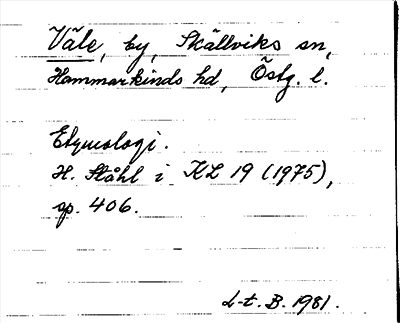 Väle, by, Skällviks sn,
Hammarkinds hd, Östg. l.
Etymologi.
H. Ståhl i KL 19 (1975),
sp. 406.
L-t. B. 1981.